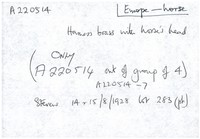 A220514
Europe - horse
Harness brass with horse's head
ONLY
(A220514 out of group of 4)
A220514-7
Stevens 14+15/8/1928 lot 283 (pt)